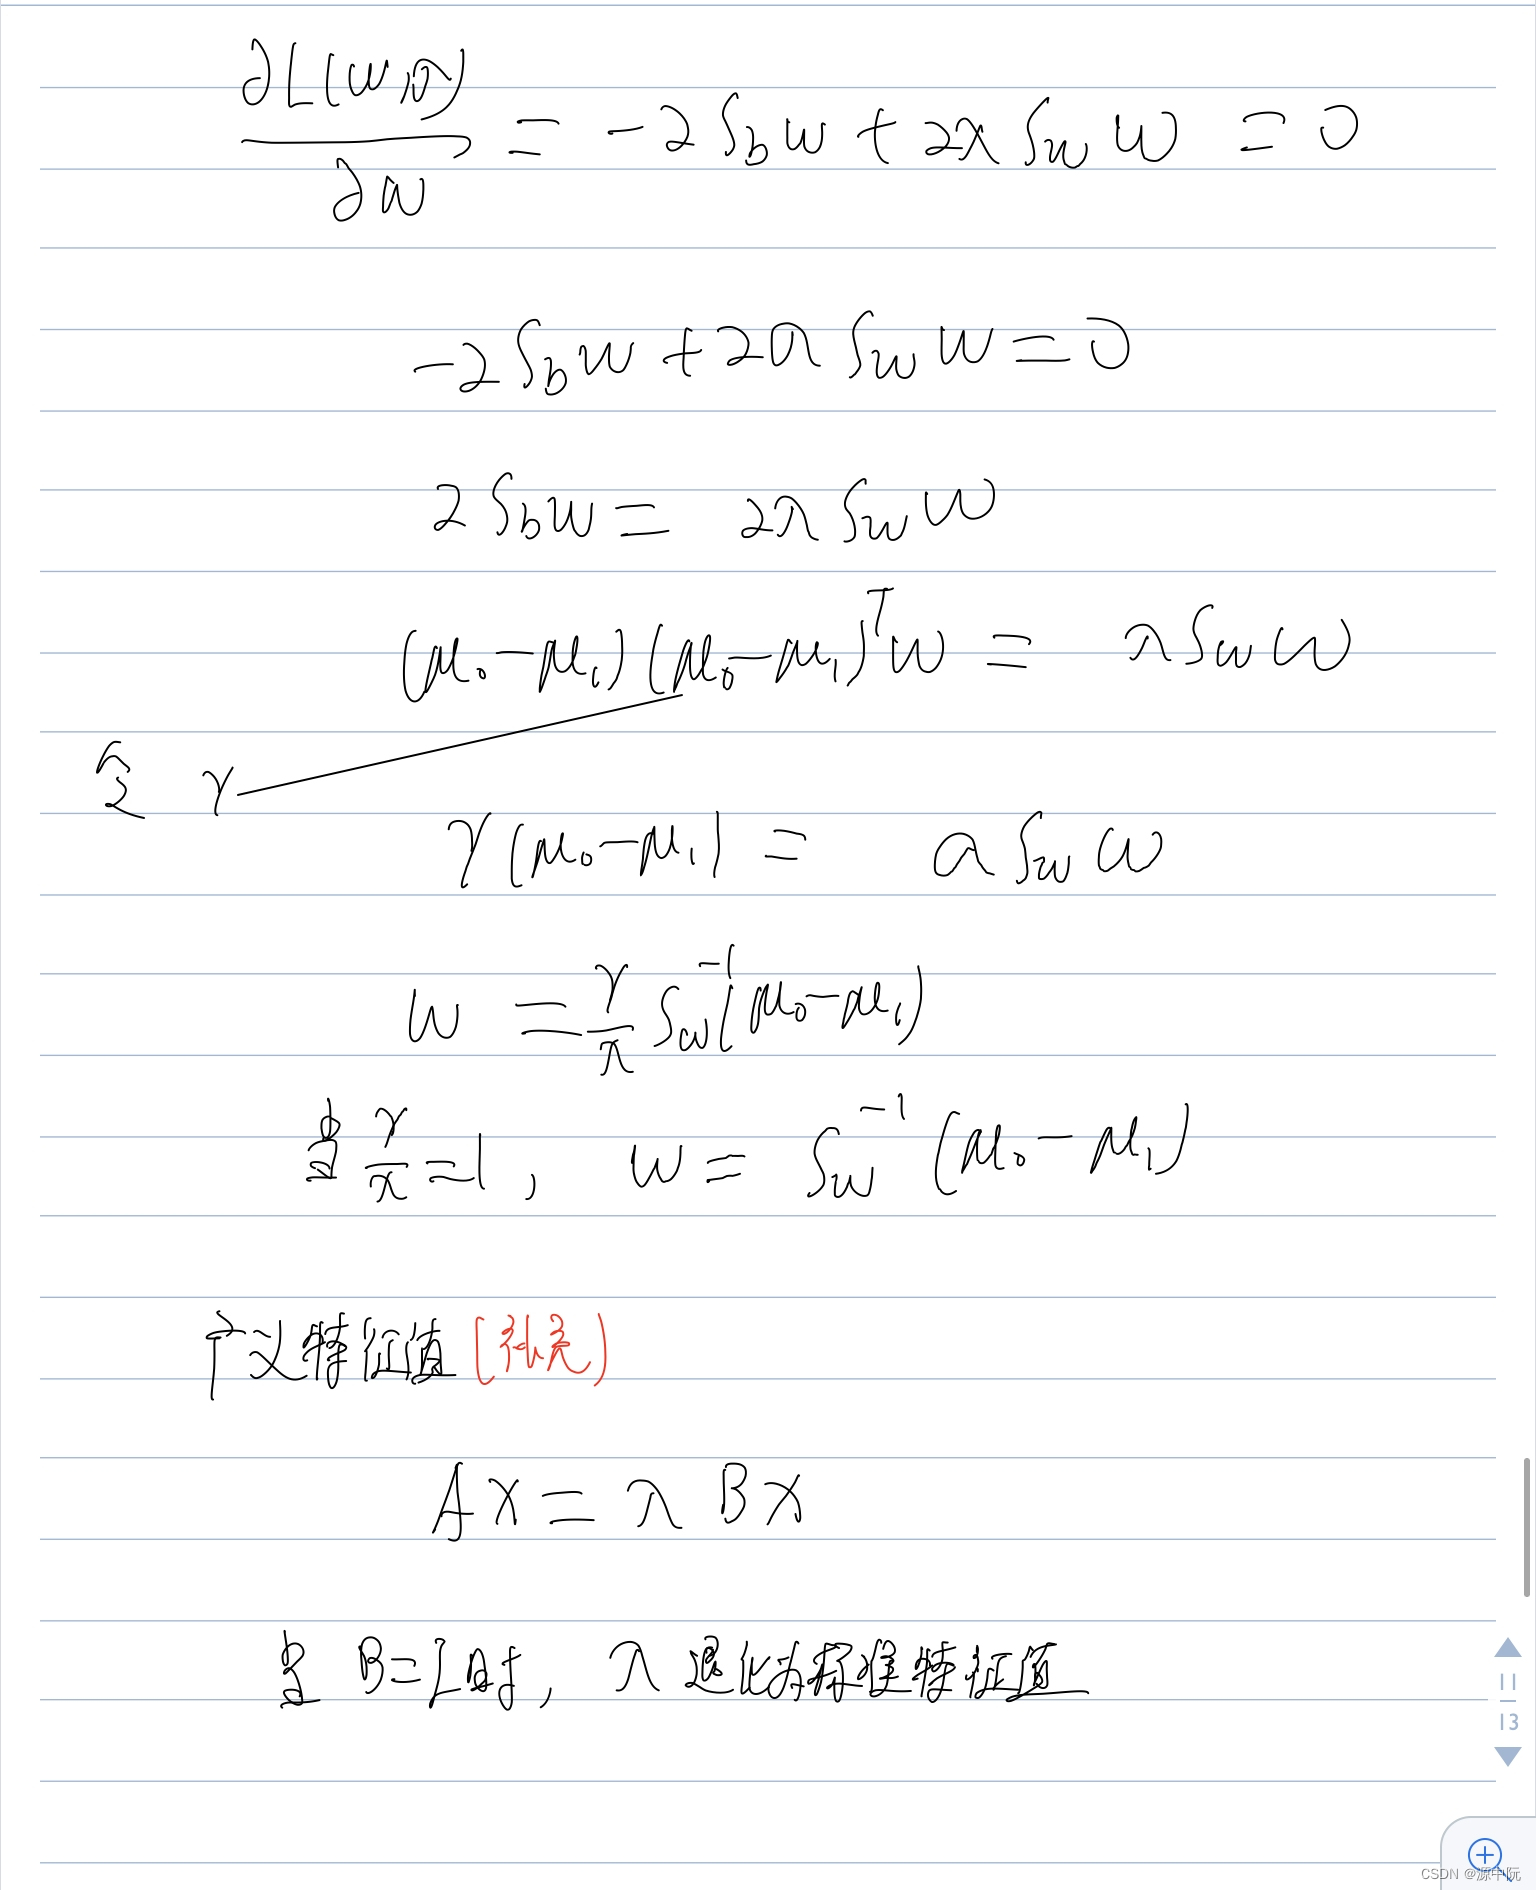 ∂L(w,λ)/∂w = -2S_b w + 2λ S_w w = 0
-2S_b w + 2λ S_w w = 0
2S_b w = 2λ S_w w
(μ₀-μ₁)(μ₀-μ₁)ᵀw = λS_w w
令 γ
γ(μ₀-μ₁) = λ S_w w
w = γ/λ S_w⁻¹(μ₀-μ₁)
当 γ/λ = 1, w = S_w⁻¹(μ₀-μ₁)
广义特征值(张亮)
AX = λ BX
当 B=I时, λ 退化为标准特征值
11
13
CSDN @源中阮